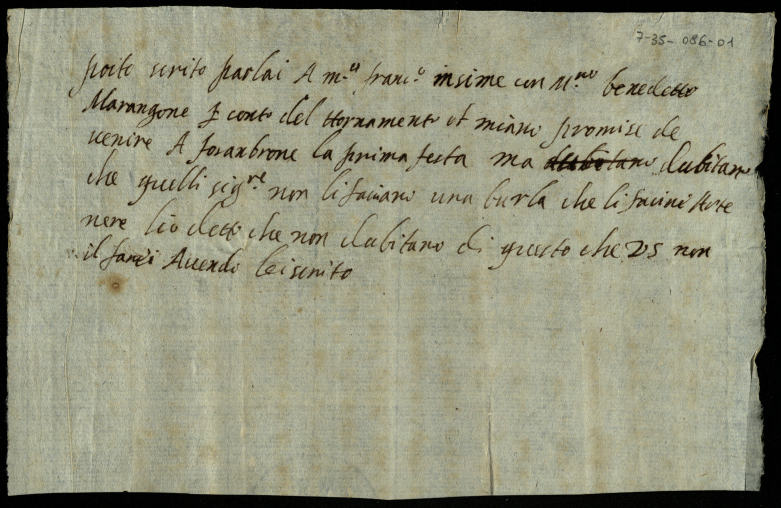 7-35-086-01
poste scrito parlai A m.ro franc.o insime con M.ro benedetto
Marangone p conto del ttornamento et miano promise de
venire A fosanbrone la prima festa ma dubitano
che quelli sig.re non li faciano una burla che li facino
nere lio detto che non dubitano di questo che VS non
il farei Avendo lei scrito